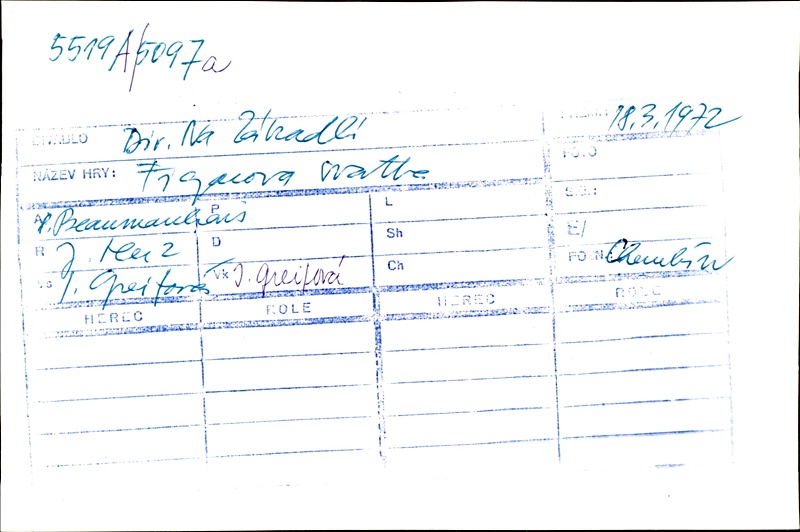 5519A/5097a
DIVADLO Div. Na Zábradlí 18.3.1972
NÁZEV HRY: Figarova svatba FOTO
A P. Beaumarchais P L S.G.:
R J. Herz D Sh E/
J. Greifová Vk J. Greifová Ch POZN. Cherubín
HEREC ROLE HEREC ROLE